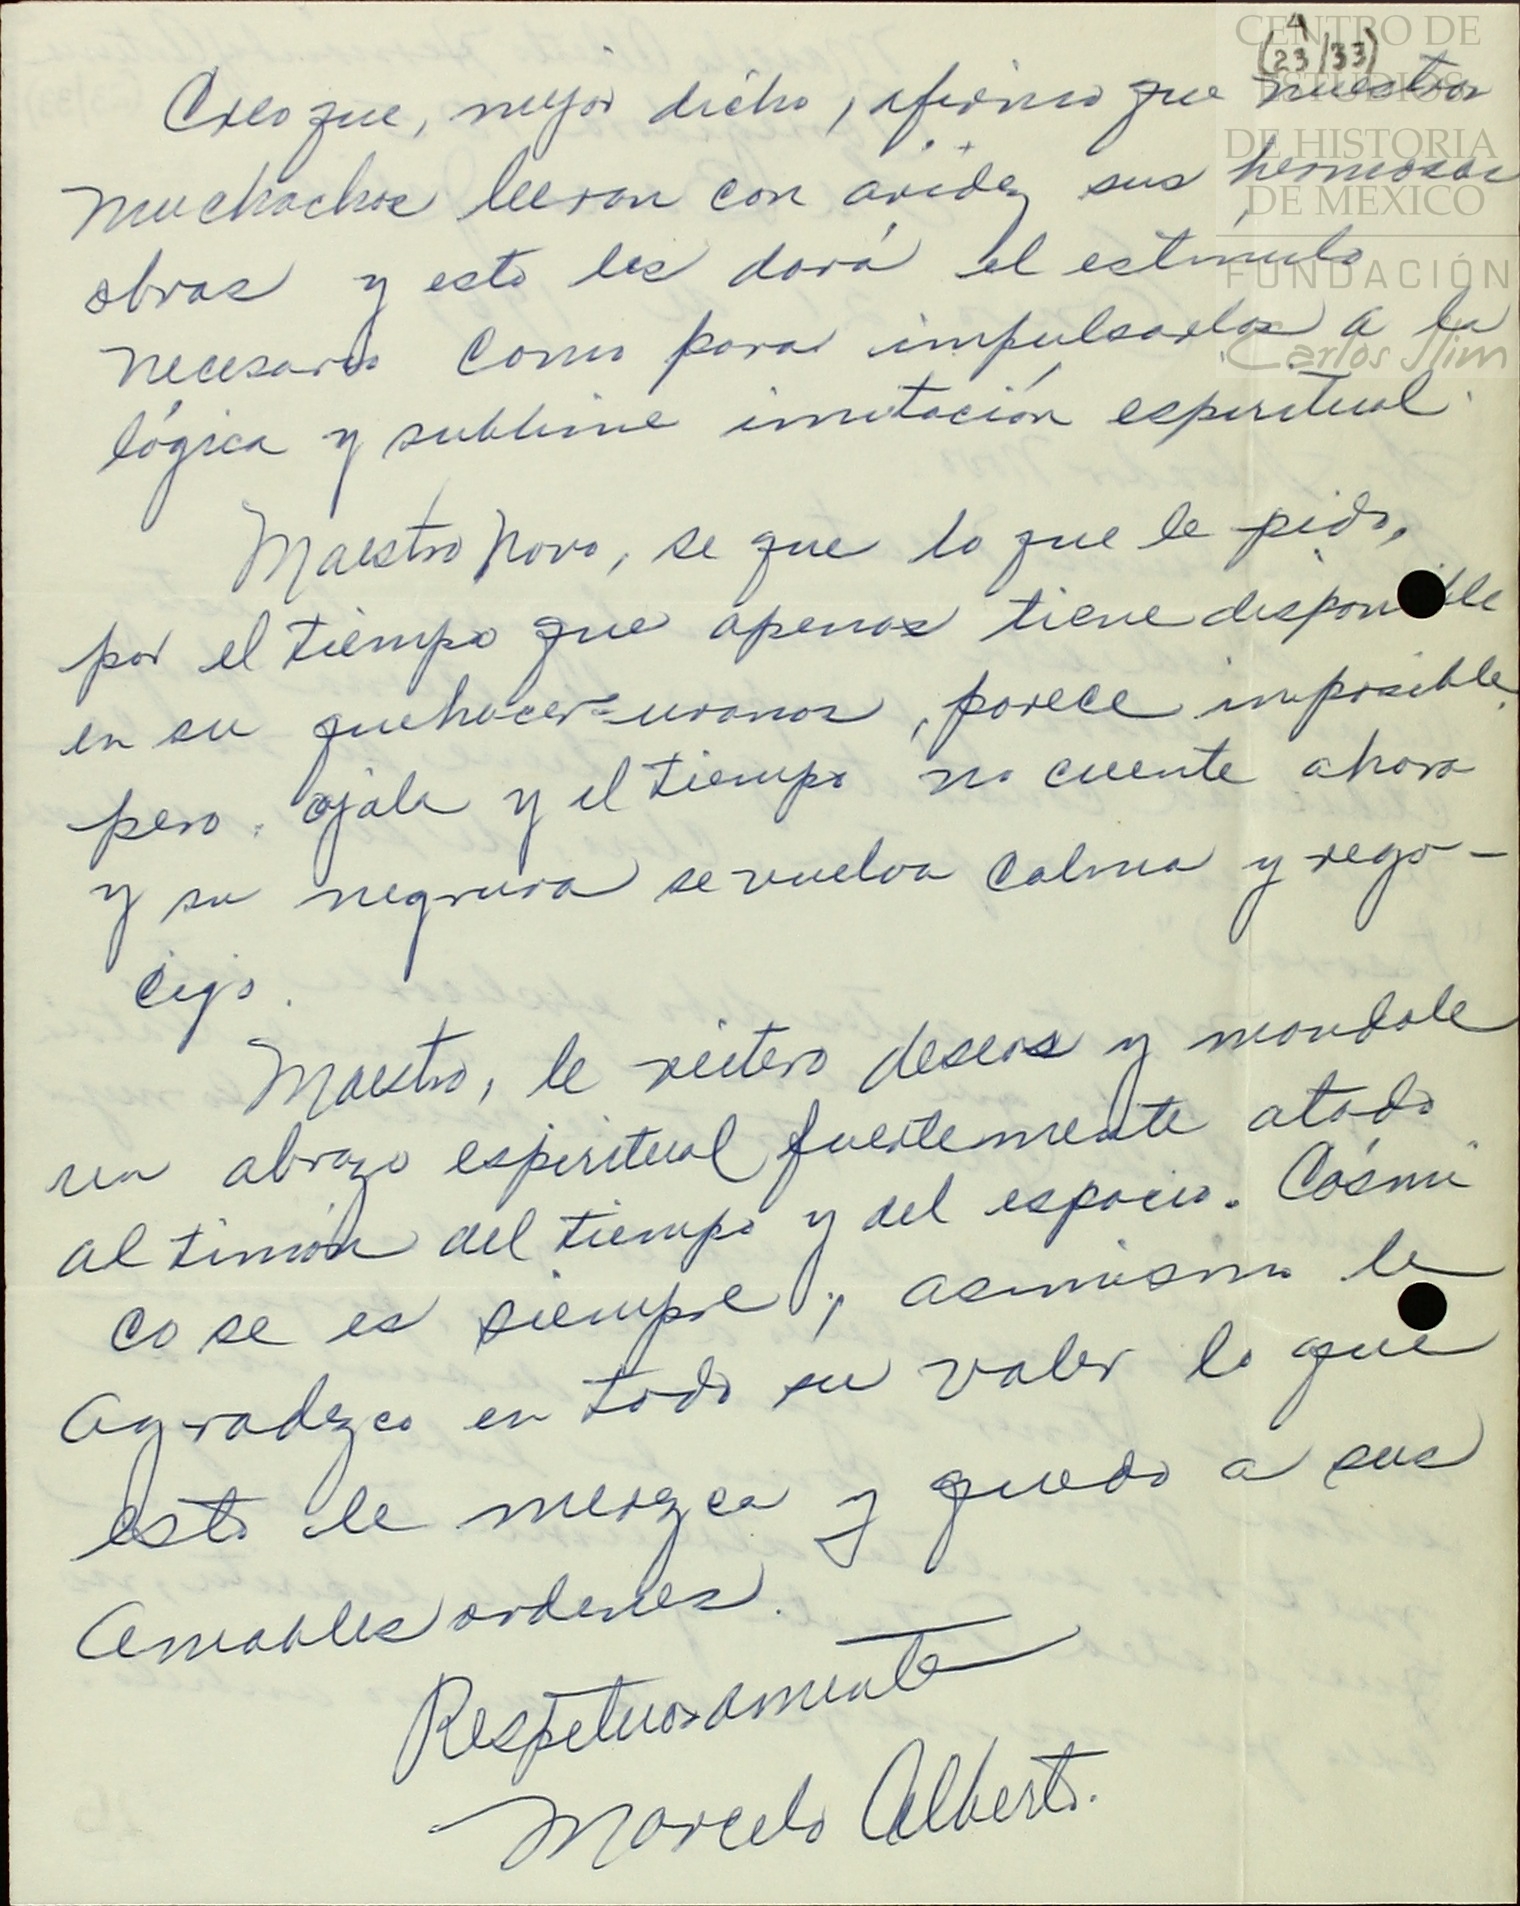 4
(23/33)
CENTRO DE
ESTUDIOS
DE HISTORIA
DE MEXICO
FUNDACIÓN
Carlos Slim
Creo que, mejor dicho, afirmo que nuestros
muchachos leeran con avidez sus hermosas
obras y esto les dará el estímulo
necesario como para impulsarlos a la
lógica y sublime imitación espiritual.
Maestro Novo, se que lo que le pido,
por el tiempo que apenas tiene disponible
en su quehacer=uranos, parece imposible,
pero. ojala y el tiempo no cuente ahora
y su negrura se vuelva calma y rego-
cijo.
Maestro, le reitero deseos y mandole
un abrazo espiritual fuertemente atado
al timón del tiempo y del espacio. Cósmi
co se es siempre; asimismo le
agradezco en todo su valer lo que
esto le merezca y quedo a sus
amables ordenes.
Respetuosamente
Marcelo Alberto.